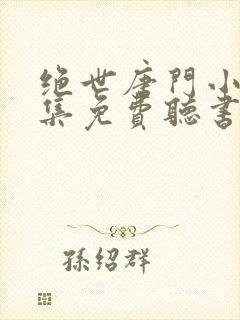 绝世唐門小
集免費聽書
孫紹群